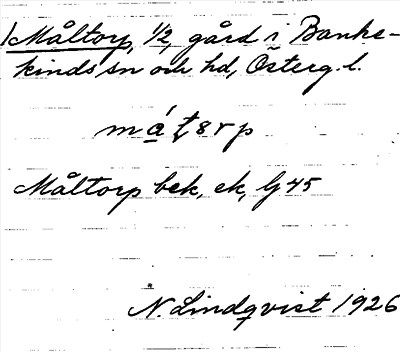 Måltorp, 1/2, gård i Banke-
kinds sn och hd, Österg. l.
måtərp
Måltorp bek, ek, Gj 45
N. Lindqvist 1926